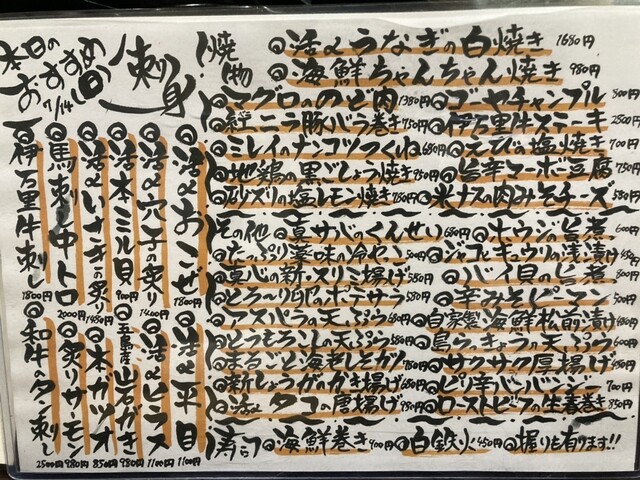 本日の
おすすめ
7/14 (日)
刺身
◎活〆おこぜ 1800円
◎活〆穴子の炙り 1400円
◎活本ミル貝 900円
◎活〆いさきの炙り 1480円
◎馬刺 中トロ 2000円
◎伊万里牛刺し 1800円
◎活〆平目 1100円
◎活〆ヒラス 1100円
◎五島産岩がき 980円
◎本ガツオ 850円
◎炙りサーモン 980円
◎和牛のタン刺し 2500円
焼物
◎活〆うなぎの白焼き 1680円
◎海鮮ちゃんちゃん焼き 980円
◎マグロののど肉 1380円
◎ゴーヤチャンプル 500円
◎紅ニラ豚バラ巻き 750円
◎伊万里牛ステーキ 2500円
◎ミレイのナンコツつくね 680円
◎えびの塩焼き 700円
◎地鶏の黒こしょう焼き 950円
◎旨辛マーボ豆腐 750円
◎砂ズリの塩レモン焼き 780円
◎米ナスの肉みそチーズ 680円
その他
◎真サバのくんせい 680円
◎ホウシの旨煮 600円
◎たっぷり薬味の冷やっこ 500円
◎ジャコとキュウリの浅漬け 450円
◎真心の新・スリミ揚げ 580円
◎バイ貝の旨煮 800円
◎とろ〜り卵のポテサラ 580円
◎辛みそピーマン 500円
◎アスパラの天ぷら 580円
◎自家製海鮮松前漬け 480円
◎とうもろこしの天ぷら 580円
◎島らっきょうの天ぷら 600円
◎まるごと海老しそカツ 780円
◎サクサク厚揚げ 450円
◎新しょうがのかき揚げ 680円
◎ピリ辛バンバンジー 700円
◎活〆タコの唐揚げ 980円
◎ローストビーフの生春巻き 850円
◎海鮮巻き 900円
◎白鉄火 450円
◎握りも有ります!!